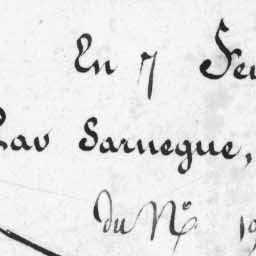 En 7 Fe
Sarnegue,
du Nº 19